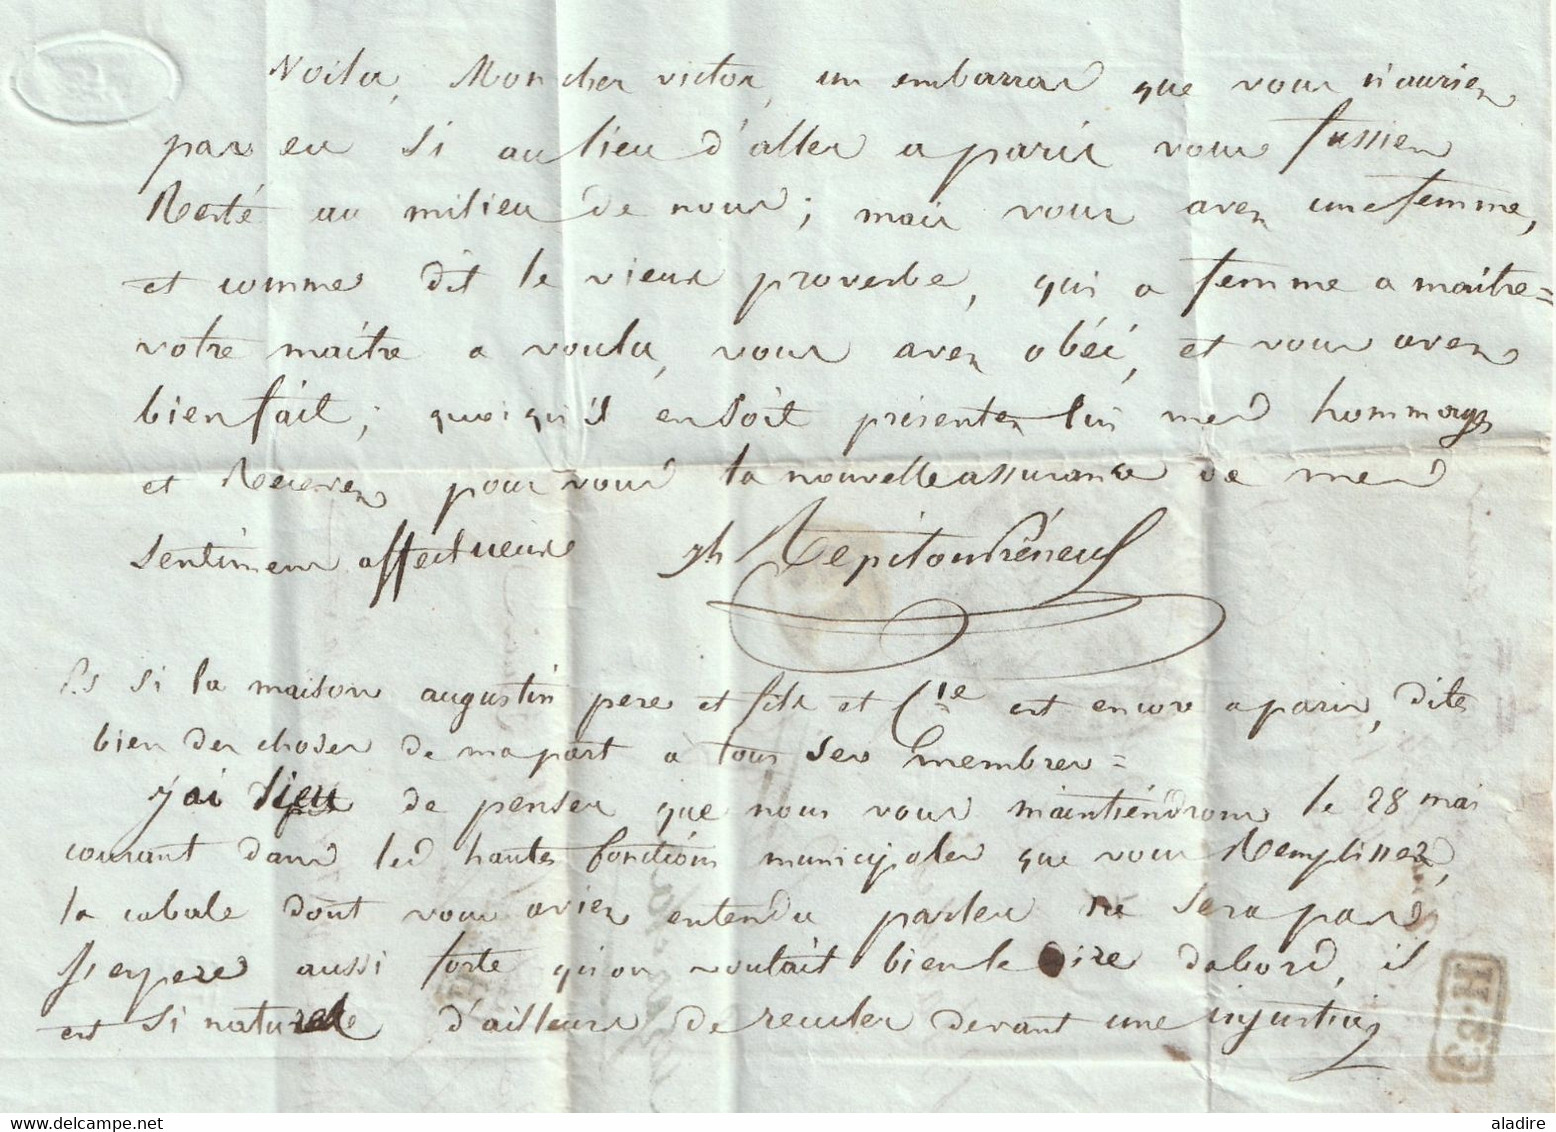 Voila, Mon cher victor, un embarras que vous n'aurien
pas eu si au lieu d'aller a paris vous fussien
Resté au milieu de nous; mais vous aven une femme,
et comme dit le vieux proverbe, qui a femme a maitre =
votre maître a voulu, vous aven obéi, et vous aven
bien fait; quoiqu'il en soit présenten lui mes hommages
et Receven pour vous la nouvelle assurance de mes
sentimens affectueux
Ps si la maison augustin pere et fils et Cie est encore a paris, dites
bien des choses de ma part a tous ses membres =
j'ai lieu de penser que nous vous maintiéndrons le 28 mai
courant dans les hautes fonctions municipales que vous Remplissez,
la cabale dont vous avien entendu parler ne sera pas
j'espere aussi forte qu'on voulait bien le dire dabord, il
est si naturel d'ailleurs de reculer devant une injustice
aladire